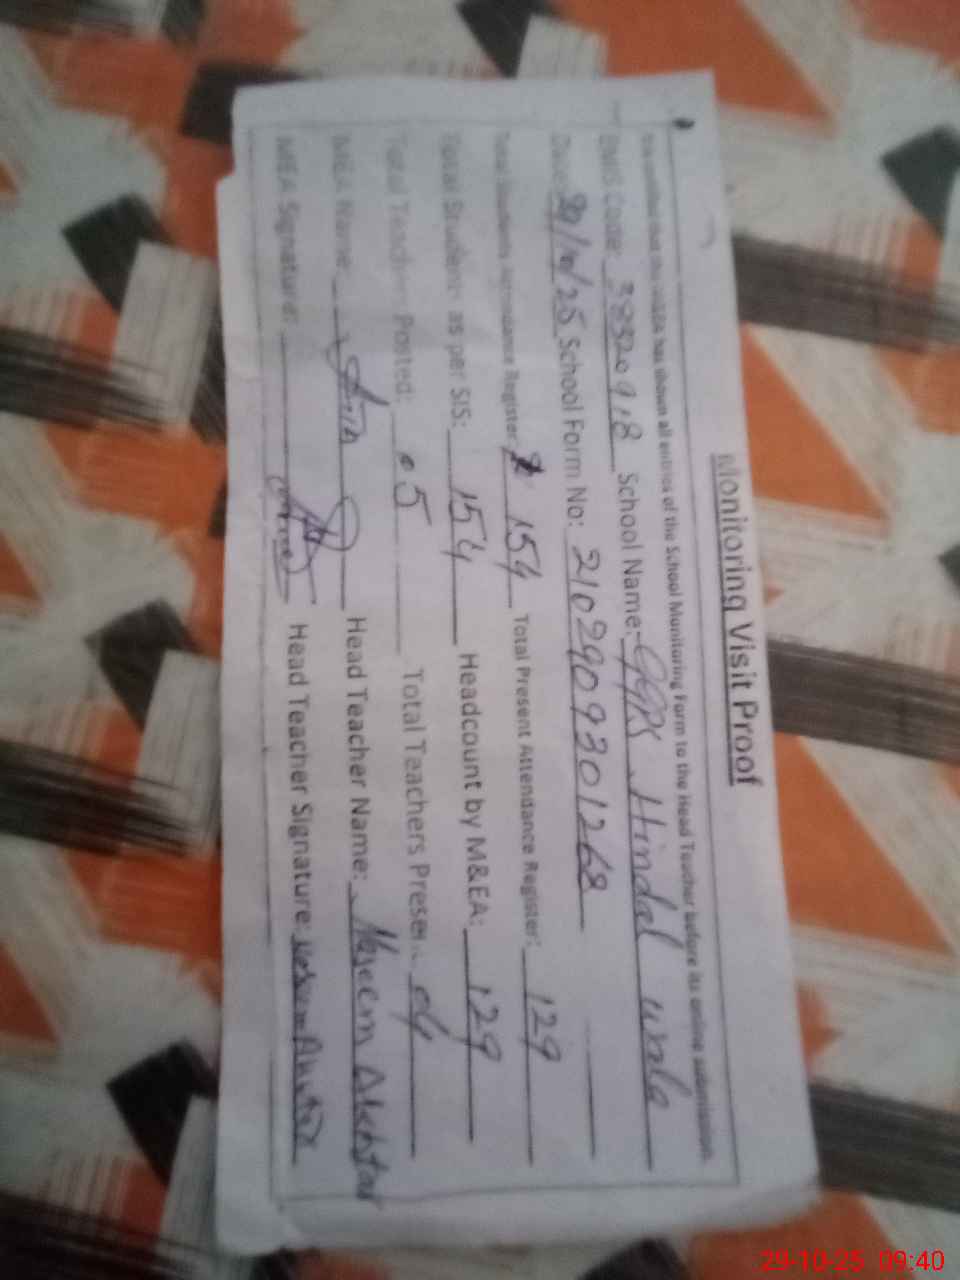 Monitoring Visit Proof
It is certified that the MEA has shown all entries of the School Monitoring Form to the Head Teacher before its online submission.
EMIS Code: 38320918 School Name: GGPS Hindal wala
School Form No: 2102909301268
Total Students Attendance Register: 154 Total Present Attendance Register: 129
Total Students as per SIS: 154 Headcount by M&EA: 129
Total Teachers Posted: 05 Total Teachers Present: 04
MEA Name: Head Teacher Name: Naseem Akhtar
MEA Signature: Head Teacher Signature: Naseem Akhtar
29-10-25 09:40